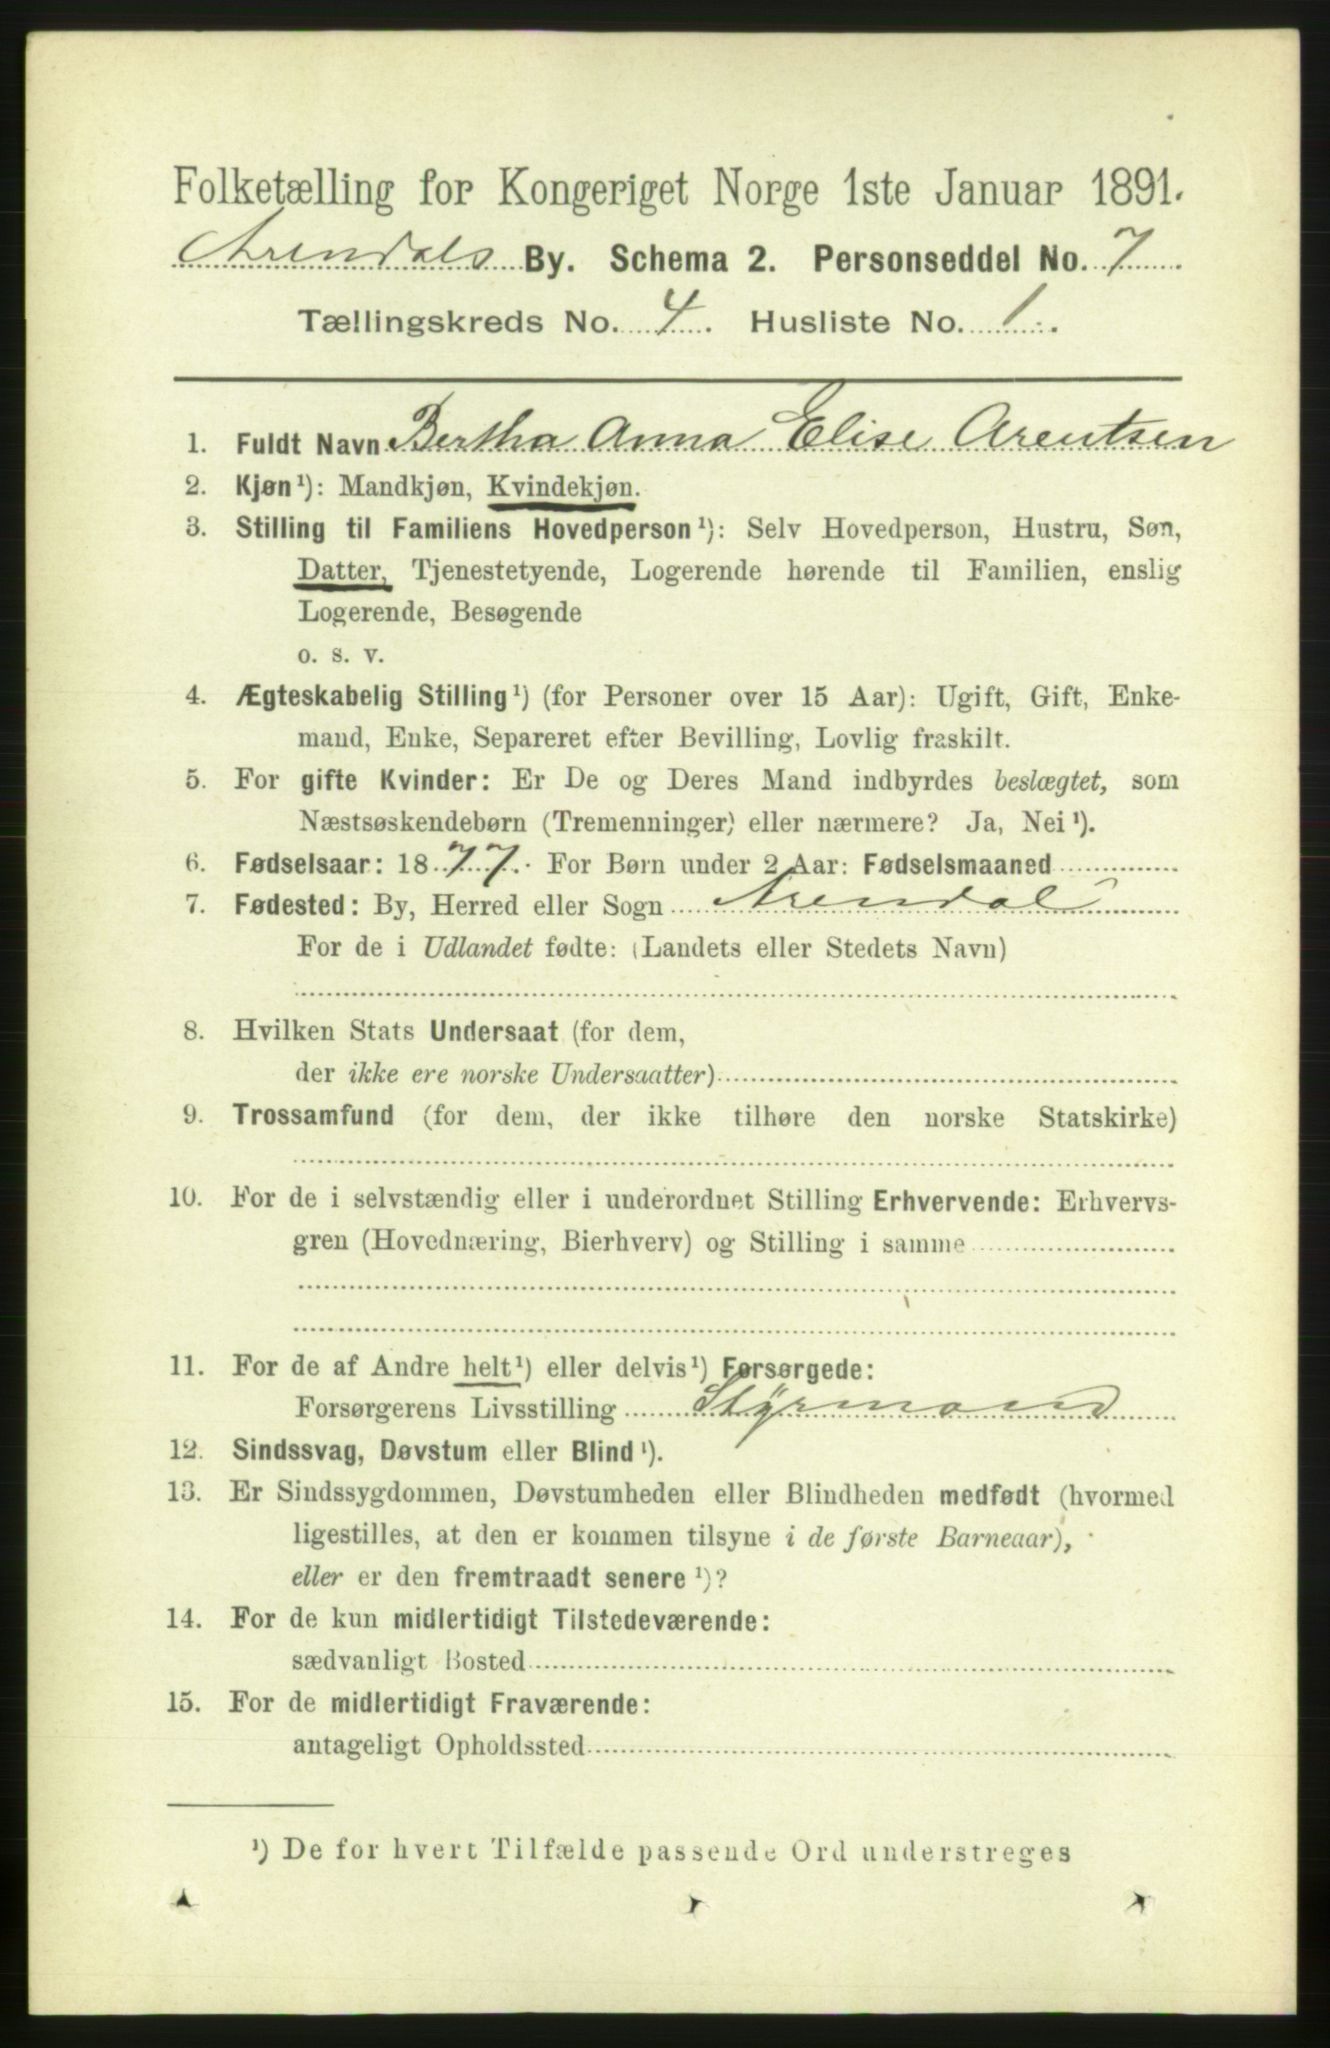 Folketælling for Kongeriget Norge 1ste Januar 1891.
Arendals By. Schema 2. Personseddel No. 7
Tællingskreds No. 4. Husliste No. 1.
1. Fuldt Navn Bertha Anna Elise Arentsen
2. Kjøn¹): Mandkjøn, Kvindekjøn.
3. Stilling til Familiens Hovedperson¹): Selv Hovedperson, Hustru, Søn,
Datter, Tjenestetyende, Logerende hørende til Familien, enslig
Logerende, Besøgende
o. s. v.
4. Ægteskabelig Stilling¹) (for Personer over 15 Aar): Ugift, Gift, Enke-
mand, Enke, Separeret efter Bevilling, Lovlig fraskilt.
5. For gifte Kvinder: Er De og Deres Mand indbyrdes beslægtet, som
Næstsøskendebørn (Tremenninger) eller nærmere? Ja, Nei¹).
6. Fødselsaar: 1877. For Børn under 2 Aar: Fødselsmaaned
7. Fødested: By, Herred eller Sogn Arendal
For de i Udlandet fødte: (Landets eller Stedets Navn)
8. Hvilken Stats Undersaat (for dem,
der ikke ere norske Undersaatter)
9. Trossamfund (for dem, der ikke tilhøre den norske Statskirke)
10. For de i selvstændig eller i underordnet Stilling Erhvervende: Erhvervs-
gren (Hovednæring, Bierhverv) og Stilling i samme
11. For de af Andre helt¹) eller delvis¹) Forsørgede:
Forsørgerens Livsstilling Styrmand
12. Sindssvag, Døvstum eller Blind¹).
13. Er Sindssygdommen, Døvstumheden eller Blindheden medfødt (hvormed
ligestilles, at den er kommen tilsyne i de første Barneaar),
eller er den fremtraadt senere¹)?
14. For de kun midlertidigt Tilstedeværende:
sædvanligt Bosted
15. For de midlertidigt Fraværende:
antageligt Opholdssted
¹) De for hvert Tilfælde passende Ord understreges